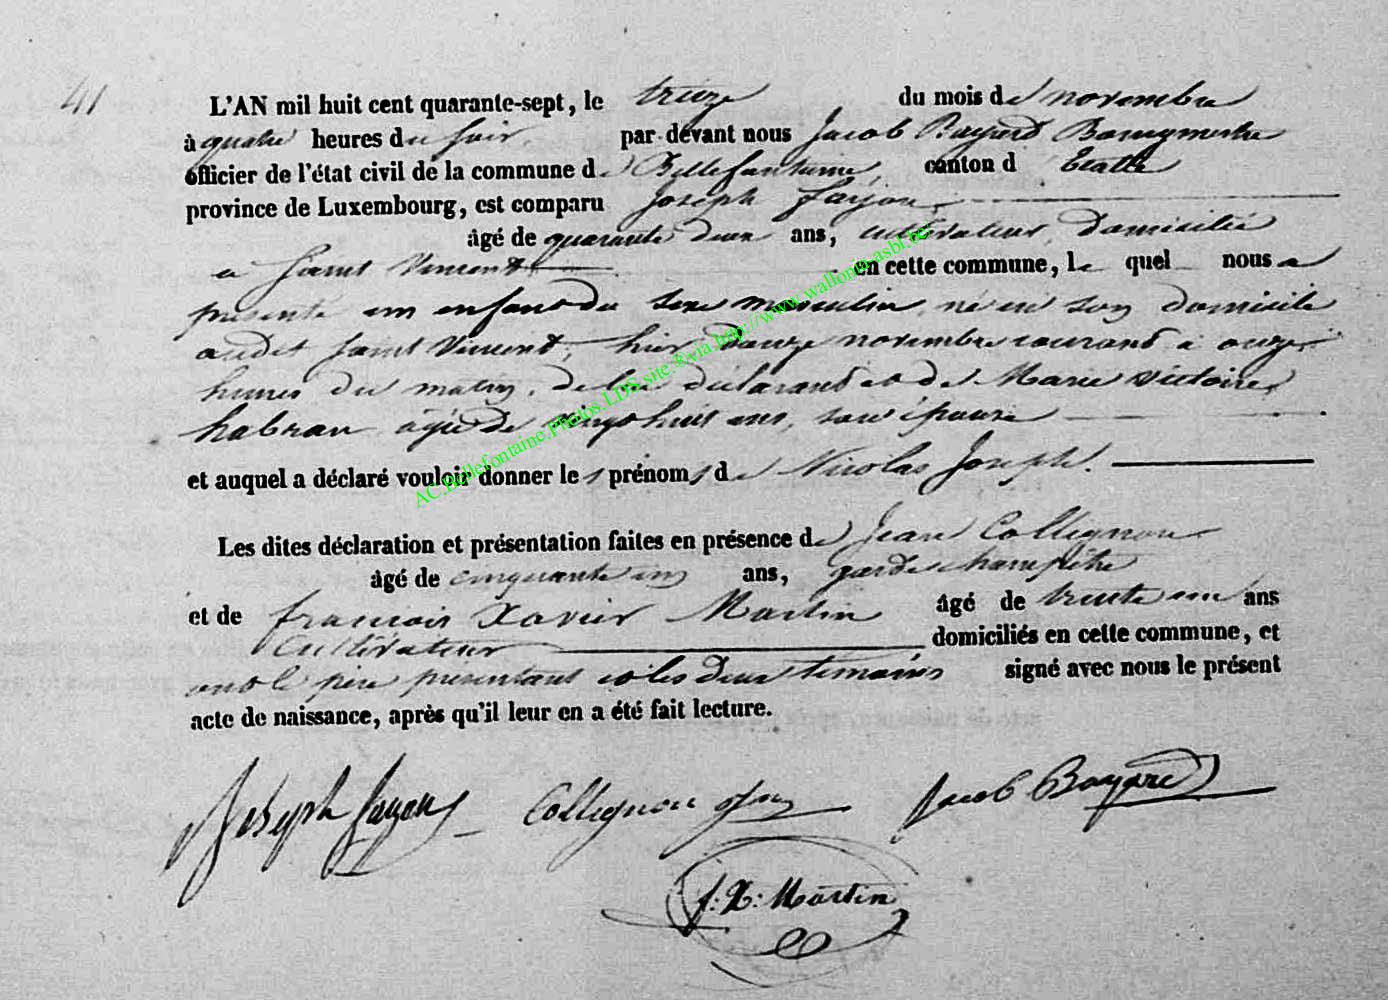 41
L'AN mil huit cent quarante-sept, le treize du mois de novembre
à quatre heures du soir, par devant nous Jacob Bayard Bourgmestre
officier de l'état civil de la commune de Bellefontaine, canton d' Etalle
province de Luxembourg, est comparu Joseph Fayon
âgé de quarante deux ans, cultivateur, domicilié
a Saint Vincent en cette commune, le quel nous a
présenté un enfant du sexe masculin, né en son domicile
audit Saint Vincent, hier douze novembre courant à onze
heures du matin, de lui déclarant et de Marie Victoire
habran agée de vingt huit ans, son épouse
et auquel a déclaré vouloir donner les prénoms de Nicolas Joseph.
Les dites déclaration et présentation faites en présence de Jean Collignon
âgé de cinquante un ans, garde champêtre
et de francois Xavier Martin âgé de trente un ans
Cultivateur domiciliés en cette commune, et
ont le père présentant et les deux temoins signé avec nous le présent
acte de naissance, après qu'il leur en a été fait lecture.
Joseph fayon Collignon Jean Jacob Bayard
f: X: Martin
AC.Bellefontaine.Photos.LDS.site.®via.http://www.wallonia-asbl.be/